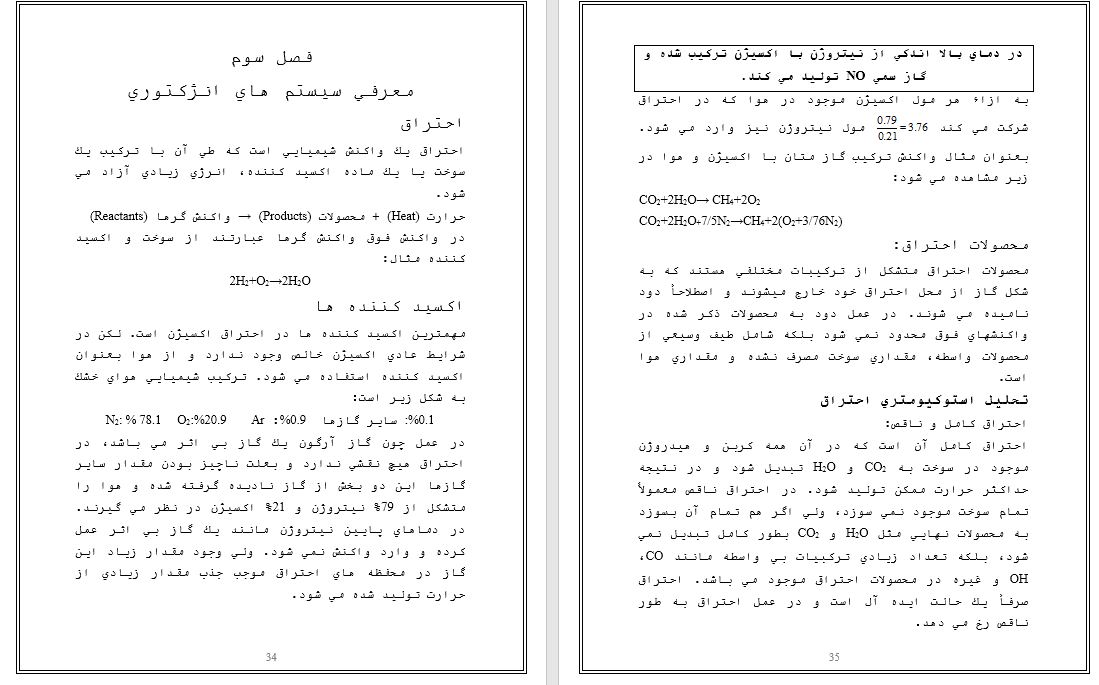 فصل سوم
معرفي سيستم هاي انژكتوري
احتراق
احتراق يك واكنش شيميايي است كه طي آن با تركيب يك
سوخت يا يك ماده اكسيد كننده، انرژي زيادي آزاد مي
شود.
حرارت (Heat) + محصولات (Products) → واكنش گرها (Reactants)
در واكنش فوق واكنش گرها عبارتند از سوخت و اكسيد
كننده مثال:
2H₂+O₂→2H₂O
اكسيد كننده ها
مهمترين اكسيد كننده ها در احتراق اكسيژن است. لكن در
شرايط عادي اكسيژن خالص وجود ندارد و از هوا بعنوان
اكسيد كننده استفاده مي شود. تركيب شيميايي هواي خشك
به شكل زير است:
N₂: % 78.1 O₂:%20.9 Ar :%0.9 ساير گازها :%0.1
در عمل چون گاز آرگون يك گاز بي اثر مي باشد، در
احتراق هيچ نقشي ندارد و بعلت ناچيز بودن مقدار ساير
گازها اين دو بخش از گاز ناديده گرفته شده و هوا را
متشكل از 79% نيتروژن و 21% اكسيژن در نظر مي گيرند.
در دماهاي پايين نيتروژن مانند يك گاز بي اثر عمل
كرده و وارد واكنش نمي شود. ولي وجود مقدار زياد اين
گاز در محفظه هاي احتراق موجب جذب مقدار زيادي از
حرارت توليد شده مي شود.
34
در دماي بالا اندكي از نيتروژن با اكسيژن تركيب شده و
گاز سمي NO توليد مي كند.
به ازاء هر مول اكسيژن موجود در هوا كه در احتراق
شركت مي كند 0.79/0.21=3.76 مول نيتروژن نيز وارد مي شود.
بعنوان مثال واكنش تركيب گاز متان با اكسيژن و هوا در
زير مشاهده مي شود:
CO₂+2H₂O→ CH₄+2O₂
CO₂+2H₂O+7/5N₂→CH₄+2(O₂+3/76N₂)
محصولات احتراق:
محصولات احتراق متشكل از تركيبات مختلفي هستند كه به
شكل گاز از محل احتراق خود خارج ميشوند و اصطلاحاً دود
ناميده مي شوند. در عمل دود به محصولات ذكر شده در
واكنشهاي فوق محدود نمي شود بلكه شامل طيف وسيعي از
محصولات واسطه، مقداري سوخت مصرف نشده و مقداري هوا
است.
تحليل استوكيومتري احتراق
احتراق كامل و ناقص:
احتراق كامل آن است كه در آن همه كربن و هيدروژن
موجود در سوخت به CO₂ و H₂O تبديل شود و در نتيجه
حداكثر حرارت ممكن توليد شود. در احتراق ناقص معمولاً
تمام سوخت موجود نمي سوزد، ولي اگر هم تمام آن بسوزد
به محصولات نهايي مثل H₂O و CO₂ بطور كامل تبديل نمي
شود، بلكه تعداد زيادي تركيبات بي واسطه مانند CO،
OH و غيره در محصولات احتراق موجود مي باشد. احتراق
صرفاً يك حالت ايده آل است و در عمل احتراق به طور
ناقص رخ مي دهد.
35